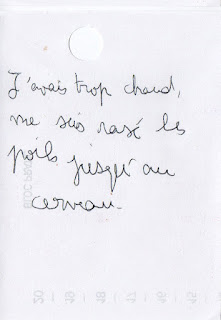 J'avais trop chaud,
me suis rasé les
poils jusqu'au
cerveau.